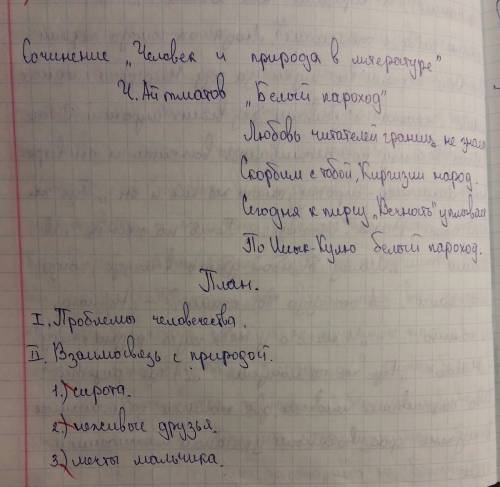 Сочинение „Человек и природа в литературе"
Ч. Айтматов „Белый пароход"
Любовь читателей границ не знает
Скорбим с тобой, Киргизии народ.
Сегодня к пирсу „Вечность" уплывает
По Иссык-Кулю белый пароход.
План.
I. Проблемы человечества.
II. Взаимосвязь с природой.
1.) сирота.
2.) неживые друзья.
3.) мечты мальчика.